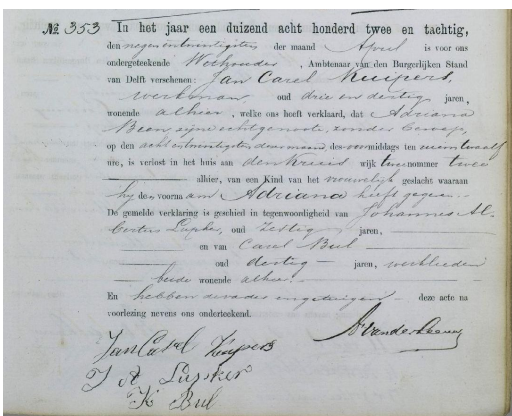 № 353 In het jaar een duizend acht honderd twee en tachtig,
den negenentwintigsten der maand April is voor ons
ondergeteekende Wethouder, Ambtenaar van den Burgerlijken Stand
van Delft verschenen: Jan Carel Kuipers,
werkman, oud drie en dertig jaren,
wonende alhier, welke ons heeft verklaard, dat Adriana
Bean, zijne echtgenoote, zonder beroep,
op den achtentwintigsten dezer maand, des voormiddags ten ure
ure, is verlost in het huis aan den wijk twee nommer twee
alhier, van een Kind van het vrouwelijk geslacht waaraan
hij den voornaam Adriana heeft gegeven.
De gemelde verklaring is geschied in tegenwoordigheid van Johannes Al-
bertus Lupker, oud zestig jaren,
en van Carel Bul
oud dertig jaren, werklieden
beide wonende alhier.
En hebben de vader en getuigen deze acte na
voorlezing nevens ons onderteekend.
Jan Carel Kuipers
J A Lupker
K Bul